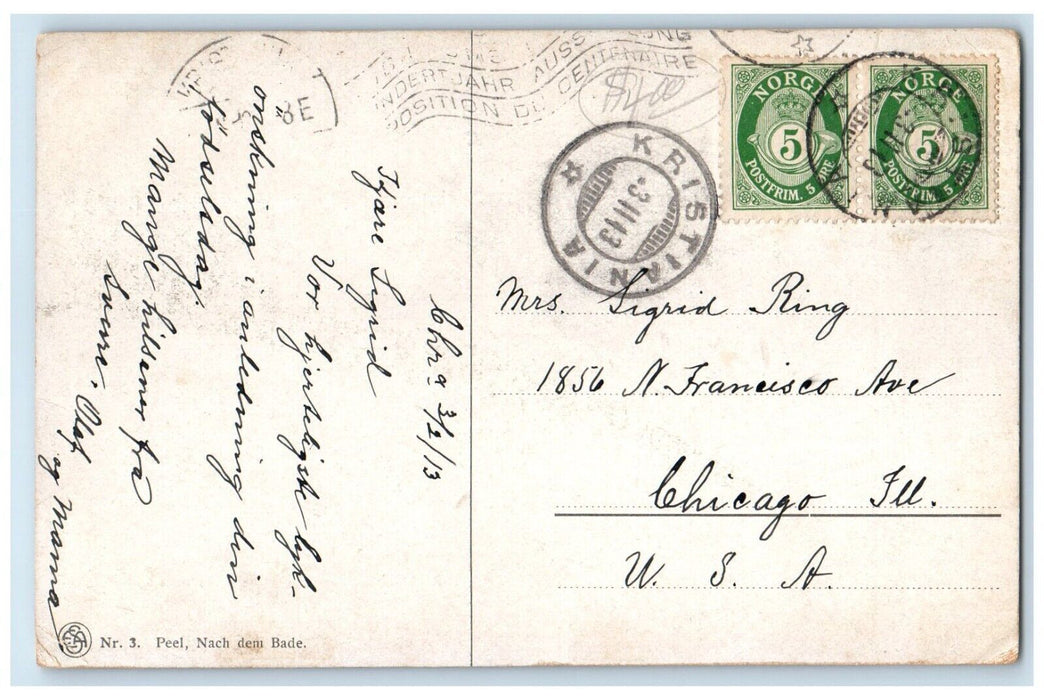 Chr.a 3/2/13
Kjære Sigrid
Vor hjerteligste lyk-
ønskning i anledning din
födselsdag.
Mange hilsener fra
Sverre. Olaf
og Mamma
Nr. 3. Peel, Nach dem Bade.
NDERTJAHR AUSS
CENTENAIRE
POSITION DU
$2.00
NORGE
5
POSTFRIM. 5 ØRE
NORGE
5
POSTFRIM. 5 ØRE
KRISTIANIA
-3 II 13
Mrs. Sigrid Ring
1856 N. Francisco Ave
Chicago Ill.
U. S. A.